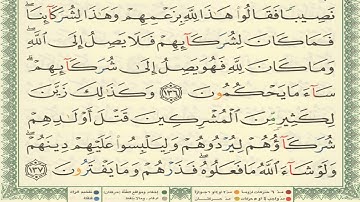 نَصِيبًا فَقَالُوا۟ هَٰذَا لِلَّهِ بِزَعْمِهِمْ وَهَٰذَا لِشُرَكَآئِنَا ۖ
فَمَا كَانَ لِشُرَكَآئِهِمْ فَلَا يَصِلُ إِلَى ٱللَّهِ ۖ
وَمَا كَانَ لِلَّهِ فَهُوَ يَصِلُ إِلَىٰ شُرَكَآئِهِمْ ۗ
سَآءَ مَا يَحْكُمُونَ ١٣٦ وَكَذَٰلِكَ زَيَّنَ
لِكَثِيرٍ مِّنَ ٱلْمُشْرِكِينَ قَتْلَ أَوْلَٰدِهِمْ
شُرَكَآؤُهُمْ لِيُرْدُوهُمْ وَلِيَلْبِسُوا۟ عَلَيْهِمْ دِينَهُمْ ۖ
وَلَوْ شَآءَ ٱللَّهُ مَا فَعَلُوهُ ۖ فَذَرْهُمْ وَمَا يَفْتَرُونَ ١٣٧